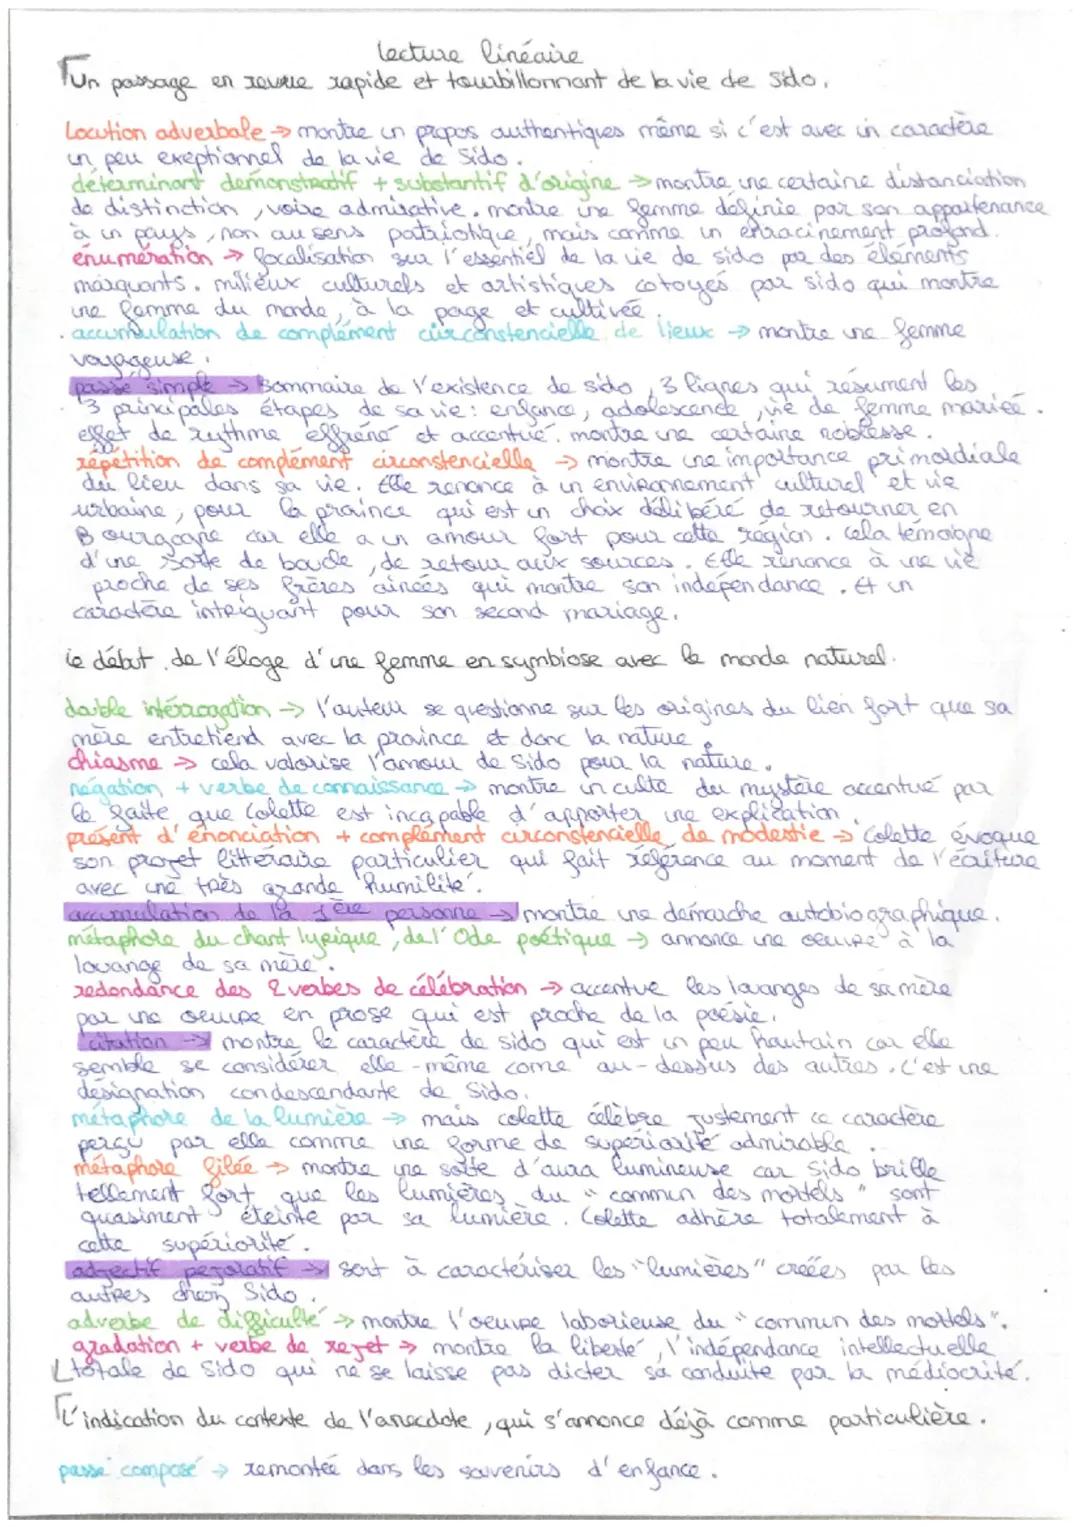 Lecture linéaire
Un passage en revue rapide et tourbillonnant de la vie de Sido.
Locution adverbale → montre un propos authentiques même si c'est avec un caractère
un peu exeptionnel de la vie de Sido.
déterminant démonstratif + substantif d'origine → montre une certaine distanciation
de distinction, voire admirative. montre une femme définie par son appartenance
à un pays, non au sens patriotique, mais comme un enracinement profond.
énumération → focalisation sur l'essentiel de la vie de sido par des éléments
marquants. milieux culturels et artistiques cotoyés par sido qui montre
une femme du monde, à la page et cultivée.
accumulation de complément circonstencielle de lieux → montre une femme
voyageuse.
passé simple → Sommaire de l'existence de sido, 3 lignes qui résument les
3 principales étapes de sa vie : enfance, adolescence, vie de femme mariée.
effet de rythme effréné et accentué. montre une certaine noblesse.
répétition de complément circonstencielle → montre une importance primordiale
du lieu dans sa vie. Elle renonce à un environnement culturel et vie
urbaine, pour la province qui est un choix délibéré de retourner en
Bourgogne car elle a un amour fort pour cette région. cela témoigne
d'une sorte de boucle, de retour aux sources. Elle renonce à une vie
proche de ses frères ainées qui montre son indépendance. Et un
caractère intriguant pour son second mariage.
le début de l'éloge d'une femme en symbiose avec le monde naturel.
double intérrogation → l'auteur se questionne sur les origines du lien fort que sa
mère entretiend avec la province et donc la nature.
chiasme → cela valorise l'amour de Sido pour la nature.
négation + verbe de connaissance → montre un culte du mystère accentué par
le faite que Colette est incapable d'apporter une explication.
présent d'énonciation + complément circonstencielle de modestie → Colette évoque
son projet littéraire particulier qui fait référence au moment de l'écriture
avec une très grande humilité.
accumulation de la 1ère personne → montre une démarche autobiographique.
métaphore du chant lyrique, de l'Ode poétique → annonce une oeuvre à la
louange de sa mère.
redondance des 2 verbes de célébration → accentue les louanges de sa mère
par une oeuvre en prose qui est proche de la poésie.
citation → montre le caractère de sido qui est un peu hautain car elle
semble se considérer elle-même come au-dessus des autres. C'est une
désignation condescendante de Sido.
métaphore de la lumière → mais colette célèbre justement ce caractère
perçu par elle comme une forme de supériorité admirable.
métaphore filée → montre une sorte d'aura lumineuse car Sido brille
tellement fort que les lumières du "commun des mortels" sont
quasiment éteinte par sa lumière. Colette adhère totalement à
cette supériorité.
adjectif péjoratif → sert à caractériser les "lumières" créées par les
autres chez Sido.
adverbe de difficulté → montre l'oeuvre laborieuse du "commun des mortels".
gradation + verbe de rejet → montre la liberté, l'indépendance intellectuelle
totale de Sido qui ne se laisse pas dicter sa conduite par la médiocrité.
L'indication du contexte de l'anecdote, qui s'annonce déjà comme particulière.
passé composé → remontée dans les souvenirs d'enfance.